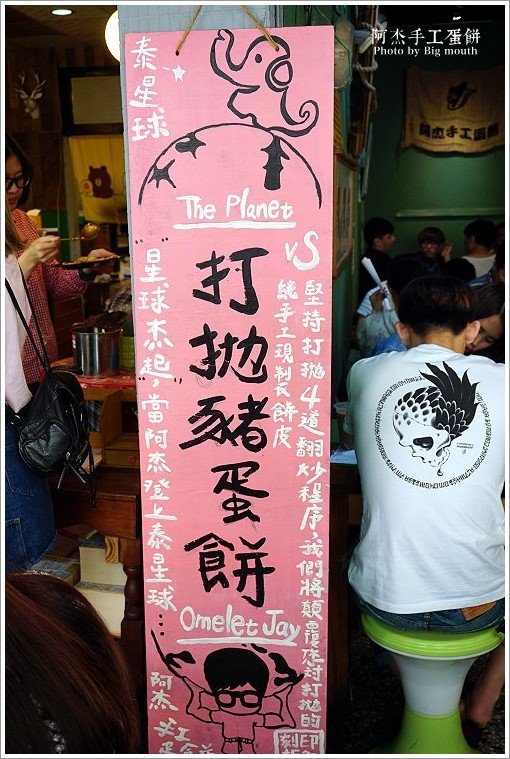 阿杰手工蛋餅
Photo by Big mouth
阿杰手工蛋餅
泰星球
The Planet
VS
打拋豬蛋餅
純手工現制餅皮
堅持打拋4道翻炒程序,我們將顛覆您對打拋的
刻板印
"星球杰起",當阿杰登上泰星球...
Omelet Jay
阿杰
手工
蛋餅